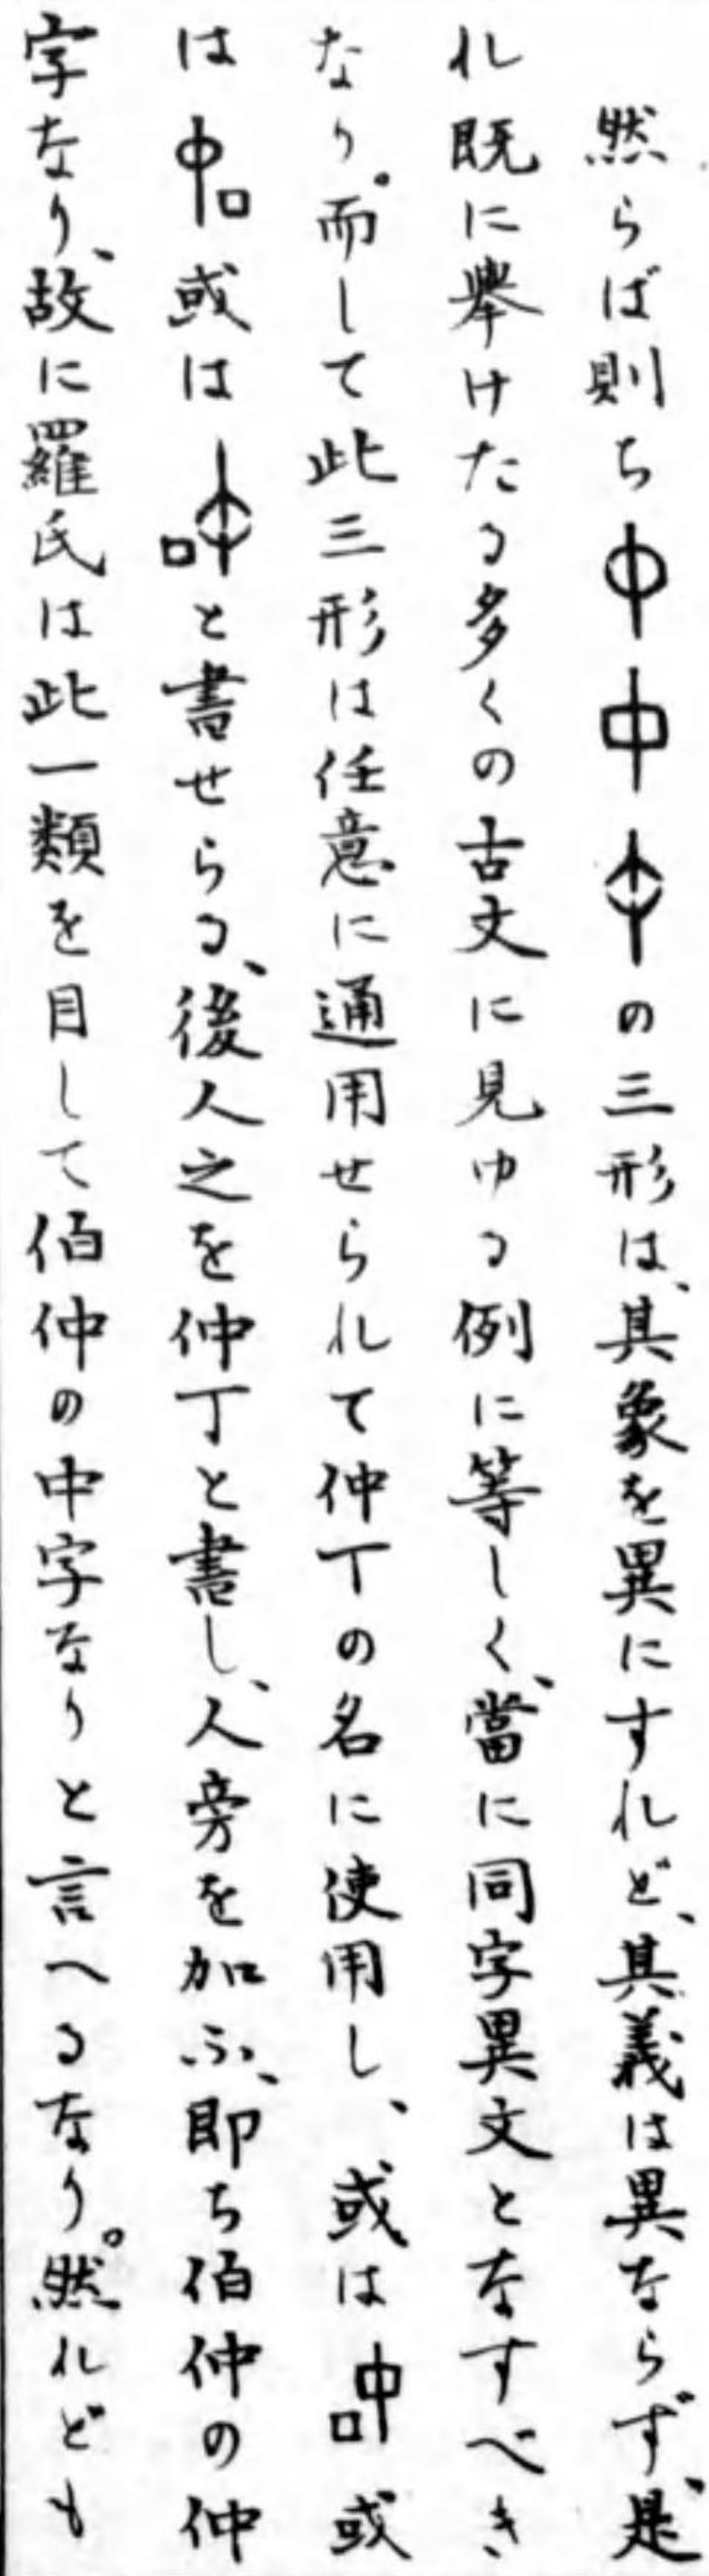 然らば則ち中中の三形は、其象を異にすれど、其義は異ならず、是
れ既に擧けたる多くの古文に見ゆる例に等しく、當に同字異文となすべき
なり。而して此三形は任意に通用せられて仲丁の名に使用し、或は中口或
は中口或は口と書せらる、後人之を仲丁と書し、人旁を加ふ、即ち伯仲の仲
字なり、故に羅氏は此一類を目して伯仲の中字なりと言へるなり。然れども